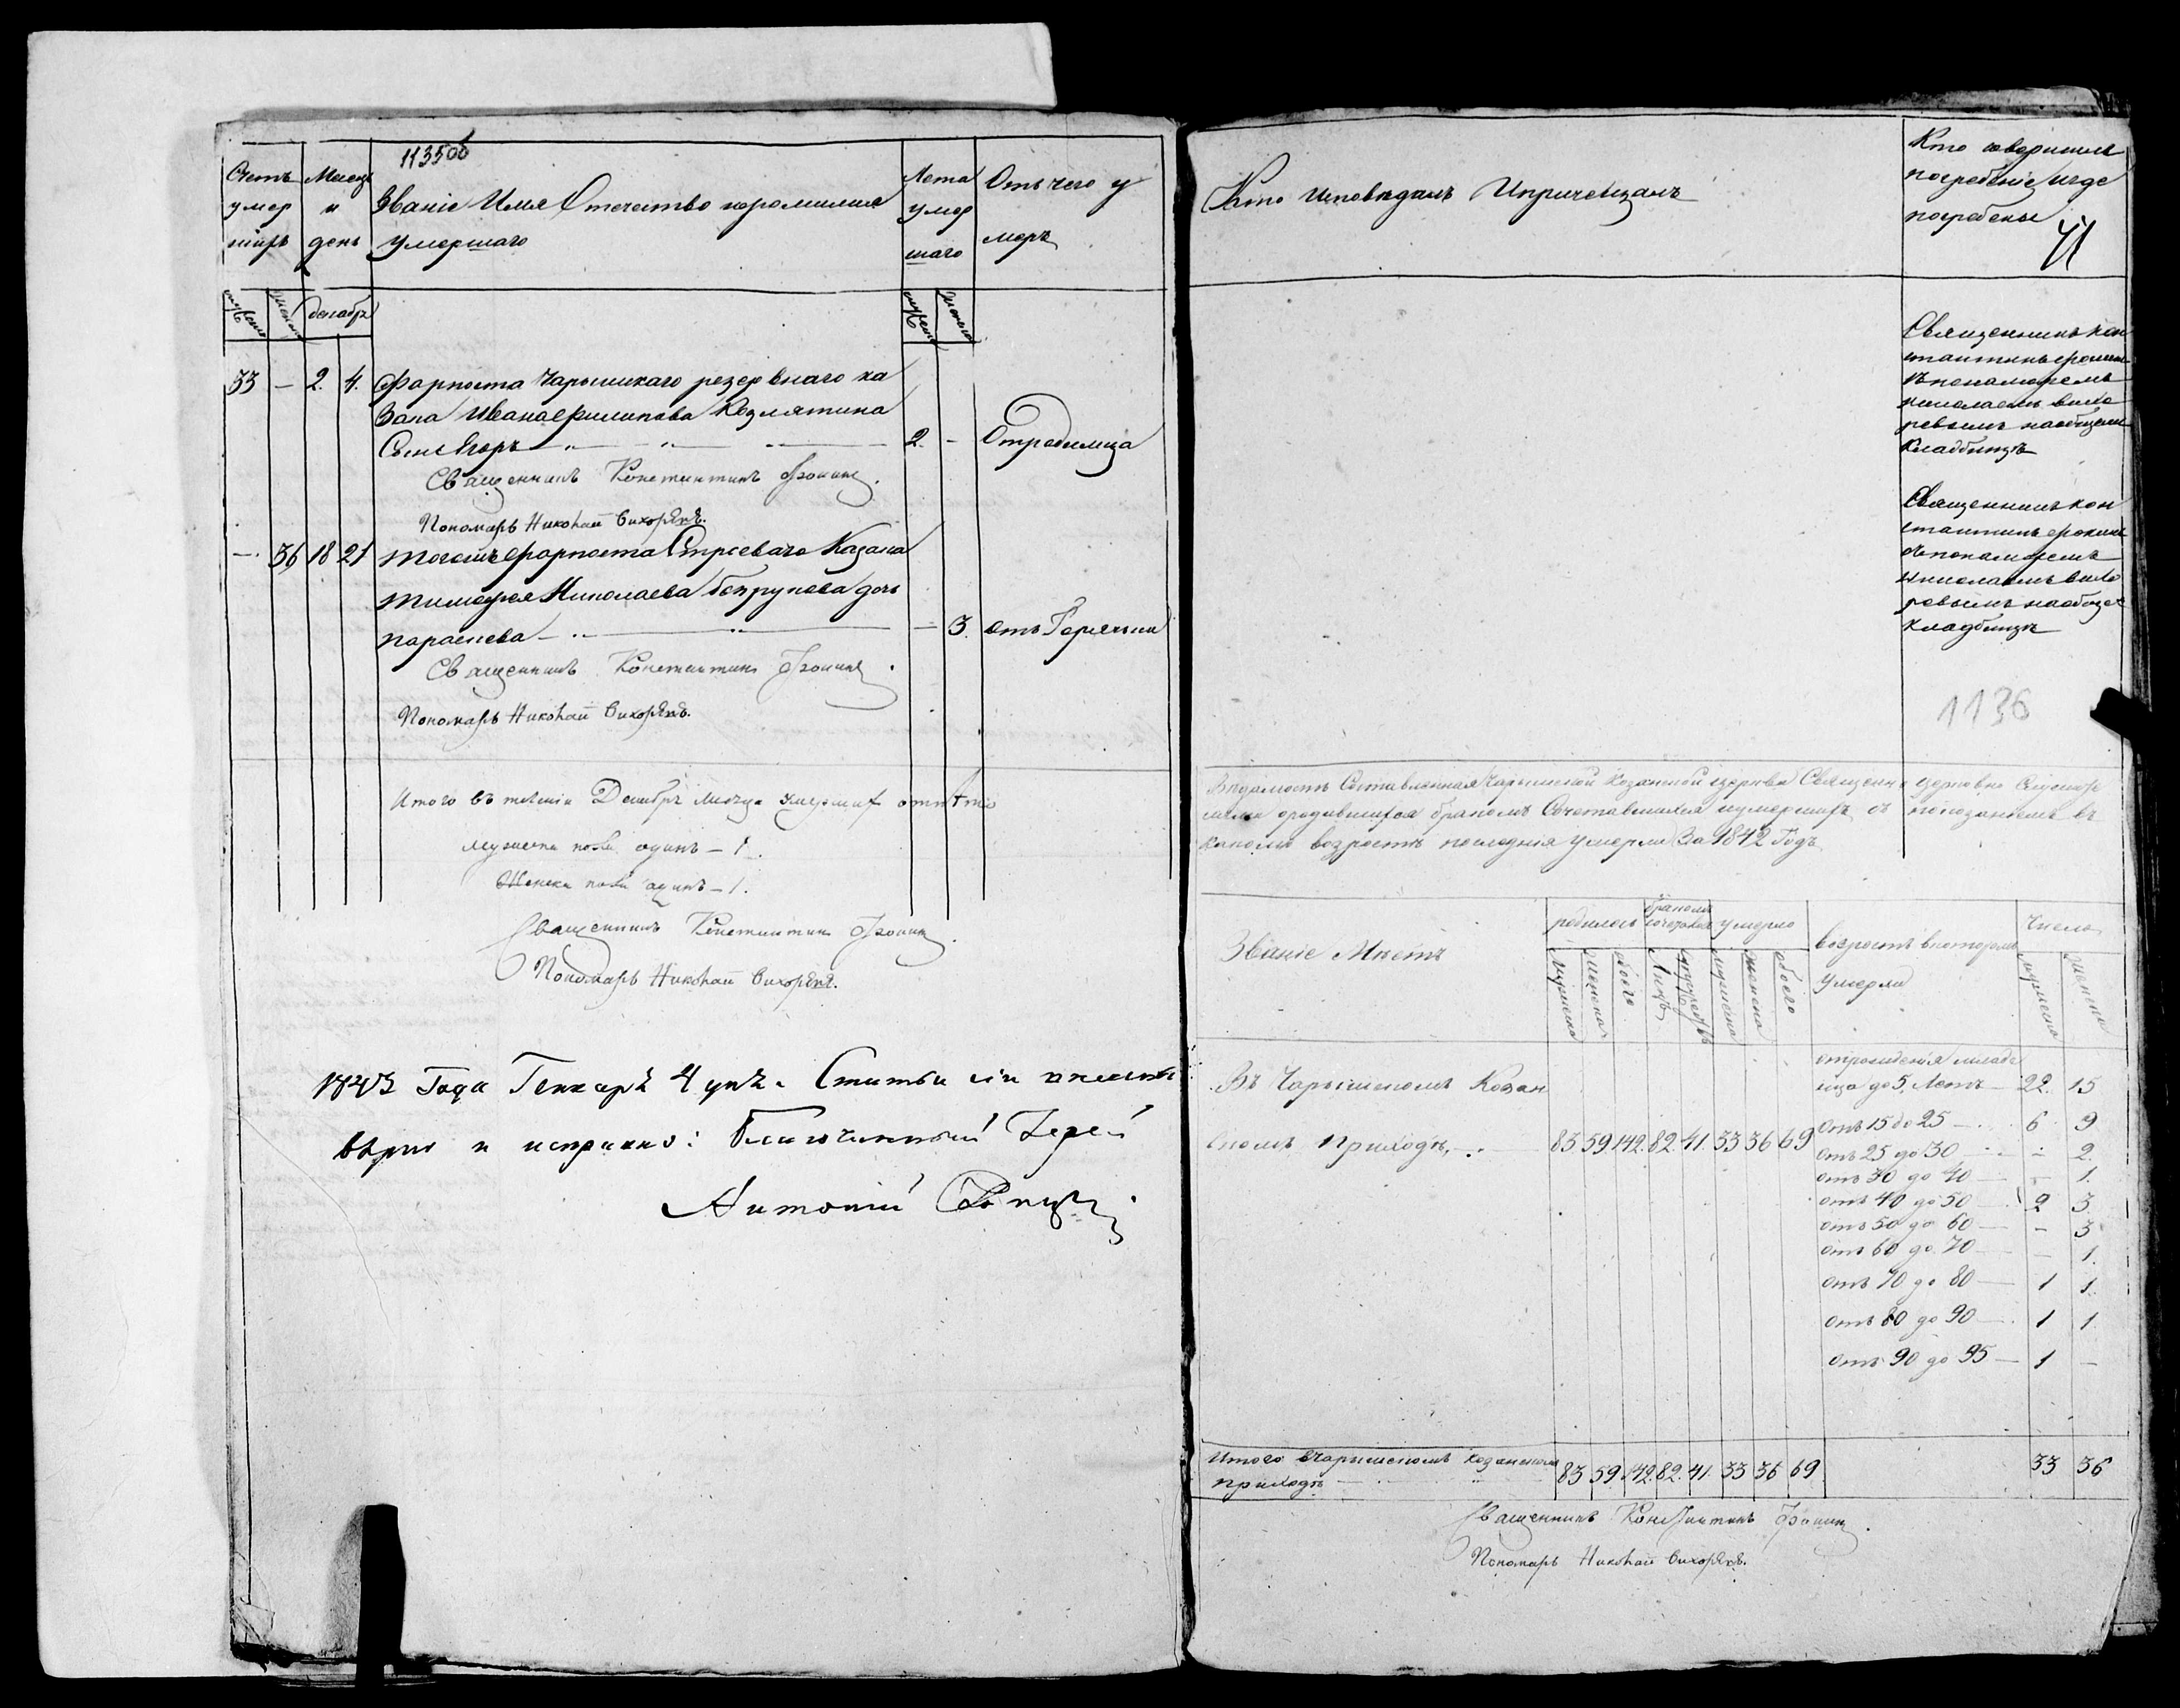 1135об
Счетъ умер шихъ
Месецъ и день
Званіе Имя Отечество ифомилия умершаго
Лета умер шаго
Отъ чего умеръ
мужеска женска
декабрь
мужеска женска
33 — 2. 4. Форпоста Чарышскаго резервнаго ка
зака Ивана Филипова Козлятина
Сынъ Егоръ 2. — Отродимца
Священникъ Константинъ
Пономарь Николай Вихоревъ.
— 36 18 21 тогожъ форпоста Строеваго Казака
тимофея Николаева дочь
параскева — 3. отъ Горячки
Священникъ Константинъ
Пономарь Николай Вихоревъ.
Итого въ теченіи Декабрь месяца умершихъ
мужеска пола одинъ — 1.
Женска пола одинъ — 1.
Священникъ Константинъ
Пономарь Николай Вихоревъ.
1843 Года Генваря 4 дня. Статьи сіи
верно и исправно: Благочинный Іерей
Антоній
Кто Исповедалъ Ипричещалъ
Кто совершилъ
погребеніе игде
погребены
41
Священникъ кон
стантинъ
спонамаремъ
николаемъ вихо
ревымъ наобщемъ
кладбищѣ
Священникъ кон
стантинъ
спонамаремъ
николаемъ вихо
ревымъ наобщем
кладбищѣ
1136
Ведомость Составленная Чарышской Казанской церкви Священно церковно Служите
лями ородившихся бракомъ Сочетавшихся иумершихъ съ показаніемъ въ
какомъ возрастѣ последнія умерли За 1842 Годъ
Званіе Мѣстъ
родилось
бракомъ сочетовал
умерло
возрастъ вкоторомъ умерли
Число
мужеска женска обоего Лицъ супружествъ мужеска женска обоего мужеска женска
Въ Чарышскомъ Казан
скомъ приходѣ 83 59 142. 82. 41. 33 36 69
отрожденія младе
нца до 5 Летъ — 22. 15
Отъ 15 до 25 — 6 9
Отъ 25 до 30 — 2.
отъ 30 до 40 — — 1.
отъ 40 до 50 — 2 3
отъ 50 до 60 — — 3
отъ 60 до 70 — — 1.
отъ 70 до 80 — 1 1.
отъ 80 до 90 — 1 1
отъ 90 до 95 — 1 —
Итого вчарышскомъ казанском
приходѣ — 83 59 142 82. 41. 33 36 69 33 36
Священникъ Константинъ
Пономарь Николай Вихоревъ.